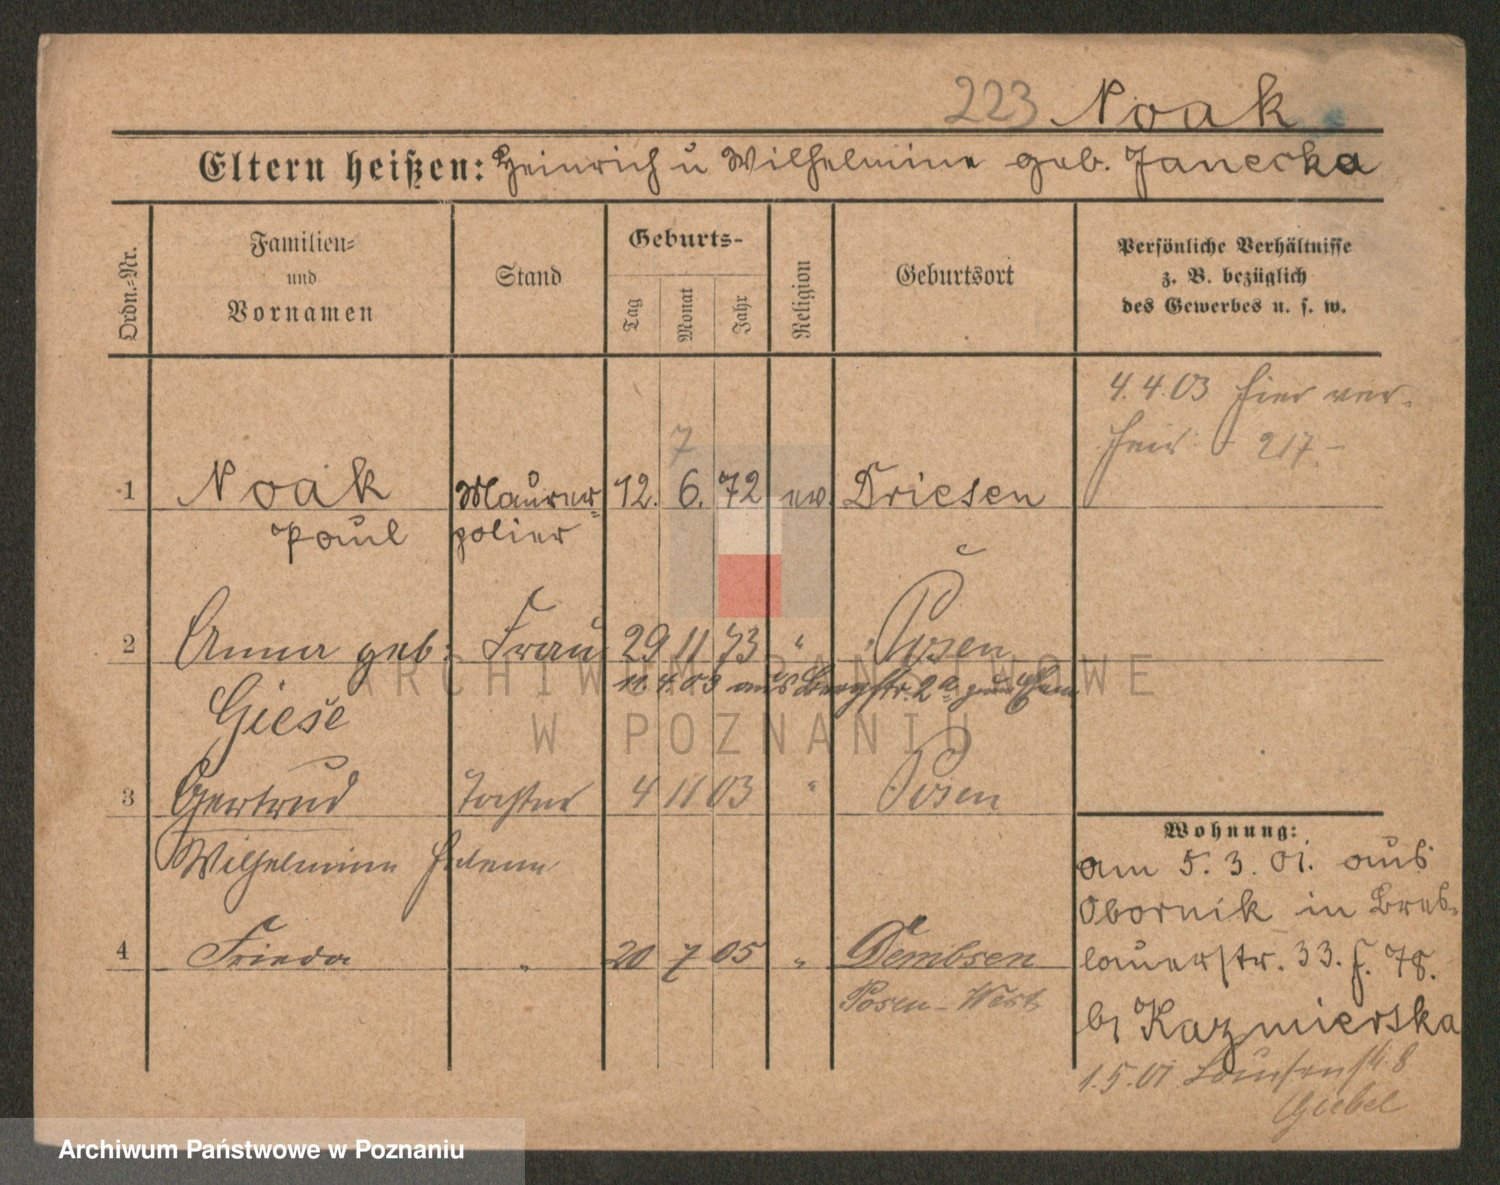 223 Noak
Eltern heißen: Heinrich u Wilhelmine geb. Janecka
Ordn.-Nr.
Familien-
und
Vornamen
Stand
Geburts-
Tag
Monat
Jahr
Religion
Geburtsort
Persönliche Verhältnisse
z. B. bezüglich
des Gewerbes u. s. w.
4.4.03 hier ver-
heir. 217-
7
1 Noak Maurer= 12. 6. 72 ev. Driesen
Paul polier
2 Anna geb: Frau 29 11 73 " Posen
11.4.03 aus Bergstr. 2a
Giese
3 Gertrud Tochter 4 11 03 " Posen
Wilhelmine Helene
4 Frieda " 20 7 05 " Dembsen
Posen-West
Wohnung:
am 5. 3. 01. aus
Obornik in Bres-
lauerstr. 33. H. 78.
b/ Kazmierska
1.5.01 Louisenstr. 8
Giebel
ARCHIWUM PAŃSTWOWE
W POZNANIU
Archiwum Państwowe w Poznaniu